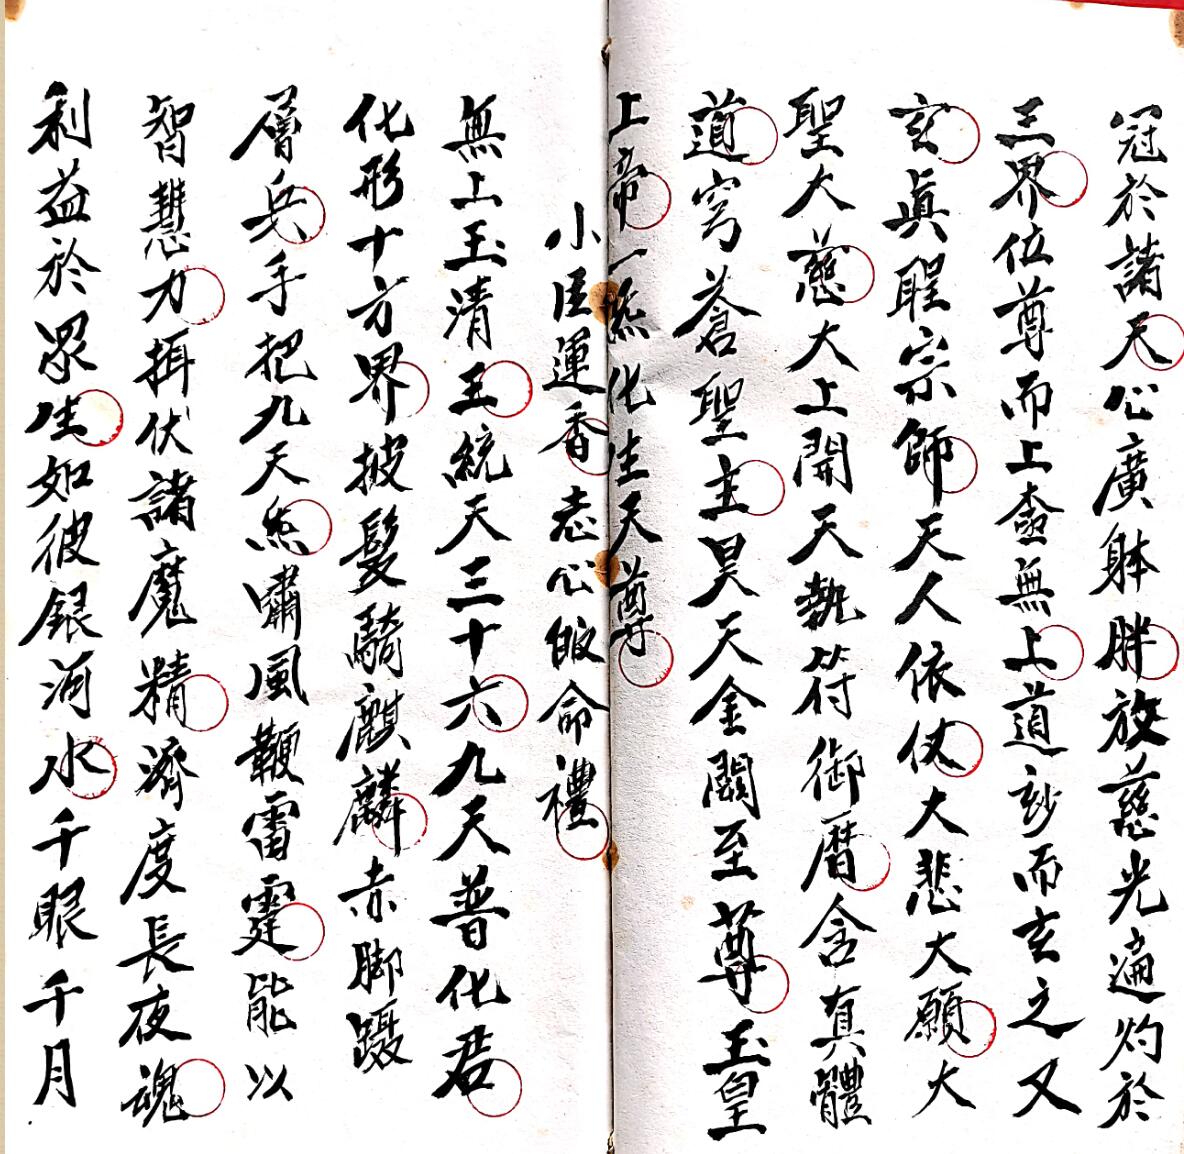 冠於諸天心廣躰胖放慈光遍灼於
三界位尊而上壺無上道玅而玄之又
玄眞聖宗師天人依仗大悲大願大
聖大慈大上開天執符御曆含真體
道穹蒼聖主昊天金闕至尊玉皇
上帝一炁化生天尊
小臣運香志心皈命禮
無上玉清王統天三十六九天普化君
化形十方界披髮騎麒麟赤脚躡
層兵手把九天炁嘯風鞭雷霆能以
智慧力揖伏諸魔精濟度長夜魂
利益於眾生如彼銀河水千眼千月